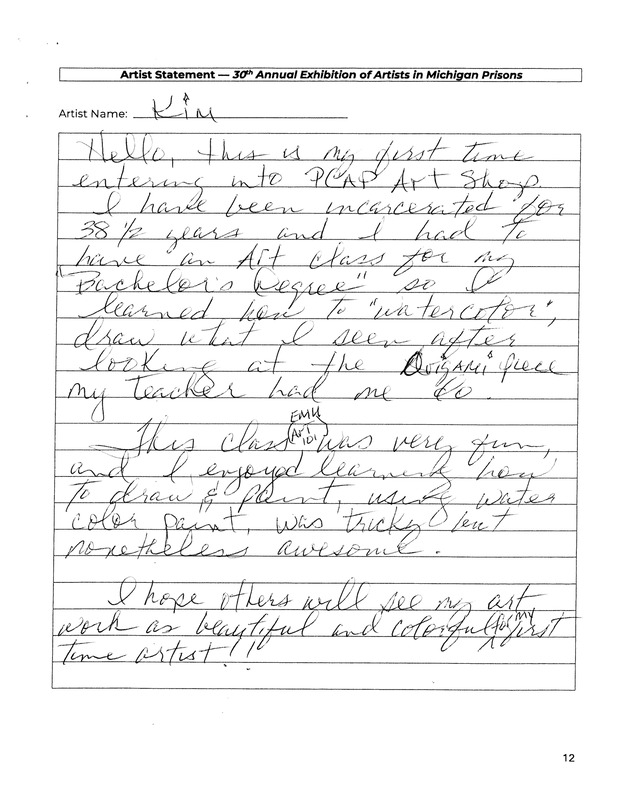 Artist Statement — 30th Annual Exhibition of Artists in Michigan Prisons
Artist Name: Kim
Hello, this is my first time
entering into PCAP Art Show.
I have been incarcerated for
38 ½ years and I had to
have an Art class for my
"Bachelor's Degree" so I
learned how to "watercolor",
draw what I seen after
looking at the Origami piece
my teacher had me do.
This class (EMU Art 101) was very fun,
and I enjoyed learning how
to draw & paint, using water
color paint, was tricky but
nonetheless awesome.
I hope others will see my art
work as beautiful and colorful for my first
time artist!!
12